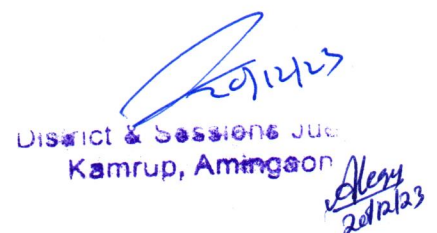 20/12/23
District & Sessions Jud
Kamrup, Amingaon
20/12/23